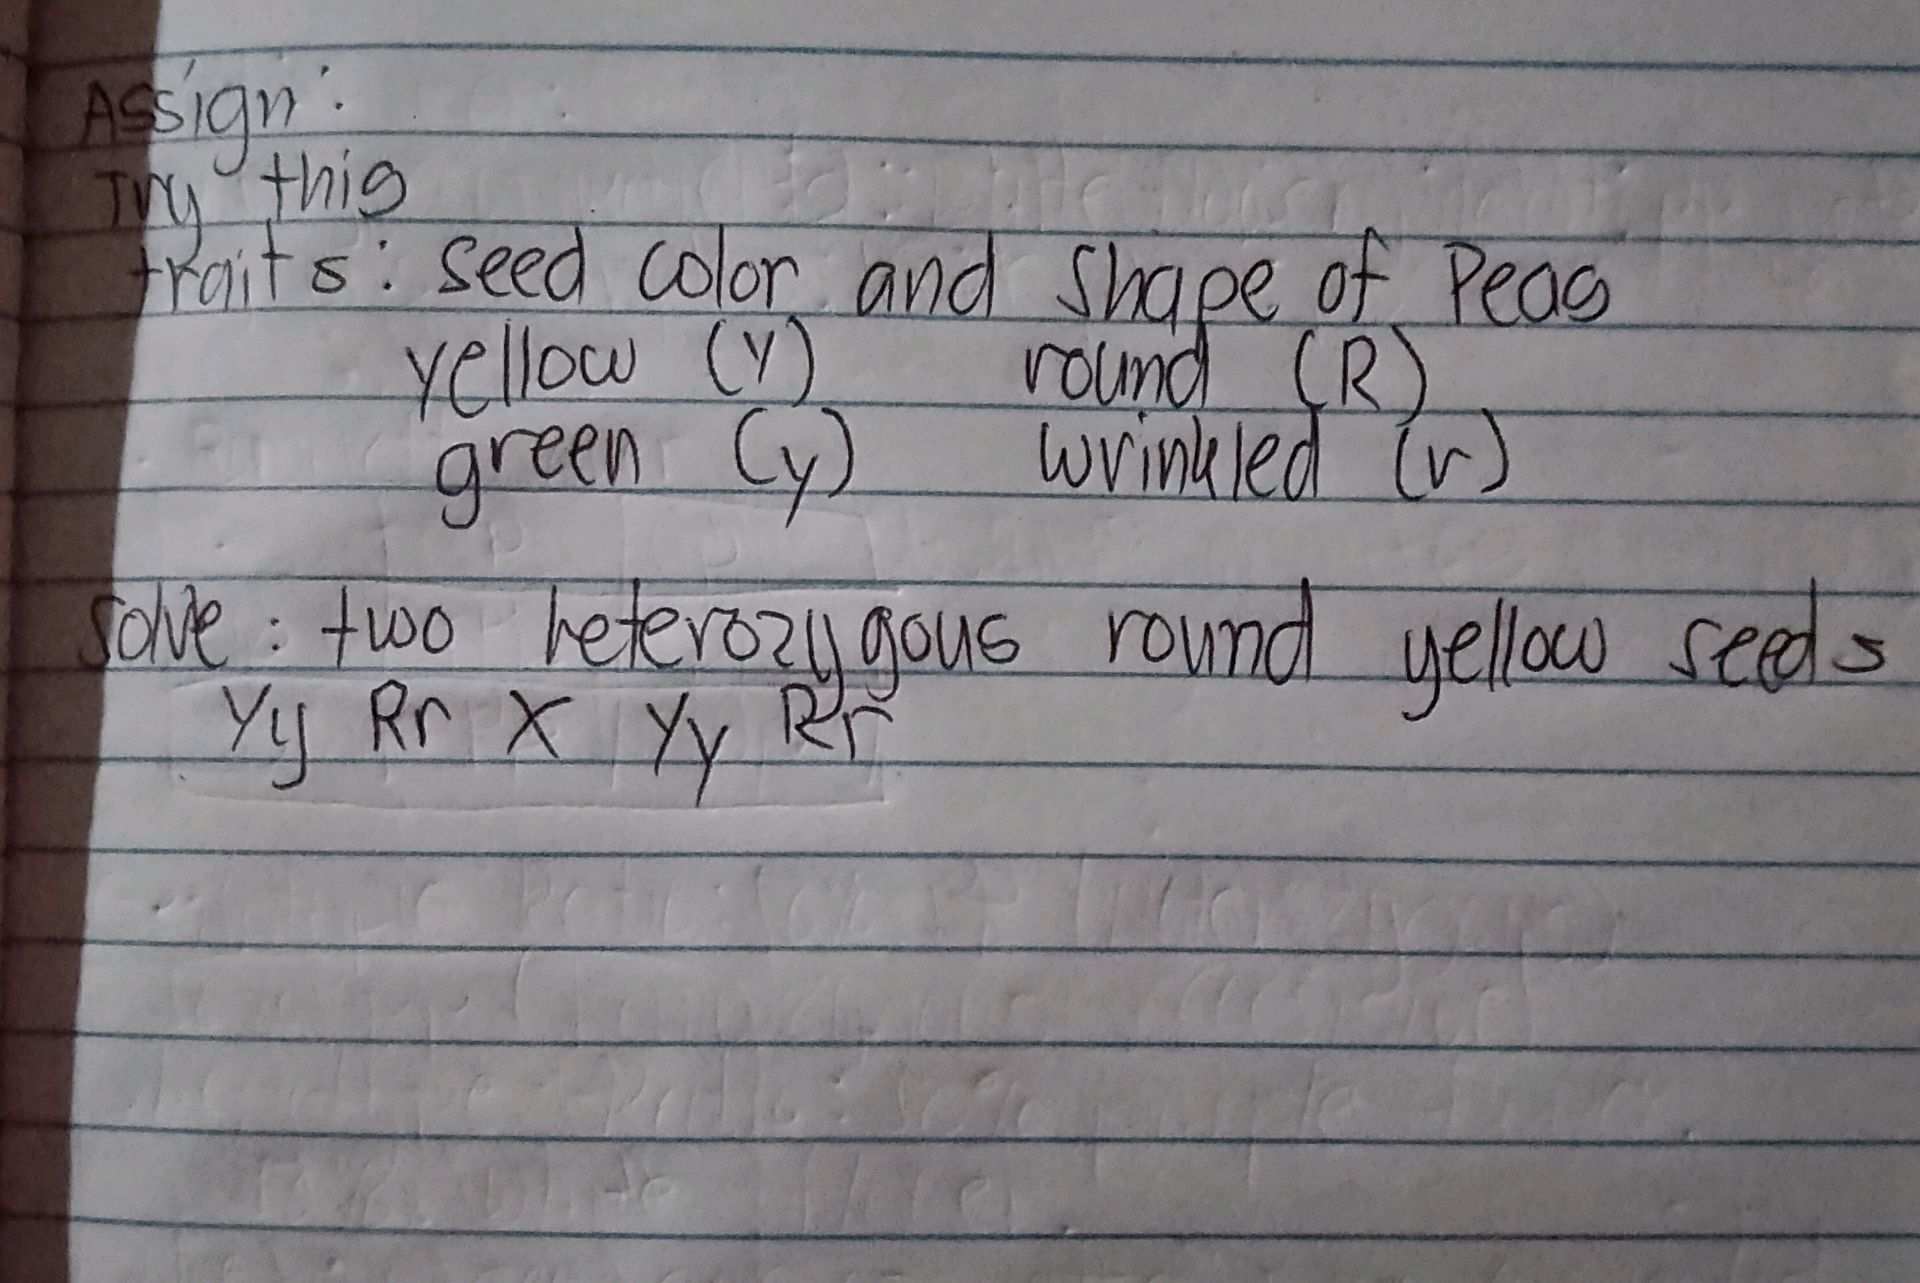 Assign:
Try this
traits: seed color and shape of Peas
yellow (Y) round (R)
green (y) wrinkled (r)
Solve: two heterozygous round yellow seeds
Yy Rr X Yy Rr